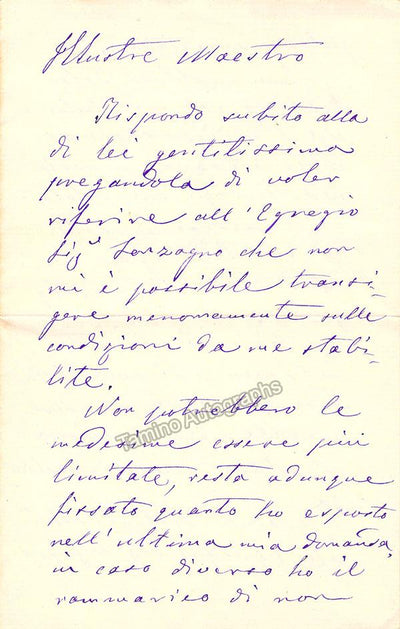 Illustre Maestro
Rispondo subito alla
di lei gentilissima
pregandola di voler
riferire all'Egregio
Sigr Sonzogno che non
mi è possibile transi-
gere menomamente sulle
condizioni da me stabi-
lite.
Non potrebbero le
medesime essere più
limitate, resta adunque
fissato quanto ho esposto
nell'ultima mia domanda,
in caso diverso ho il
rammarico di non
Tamino Autographs